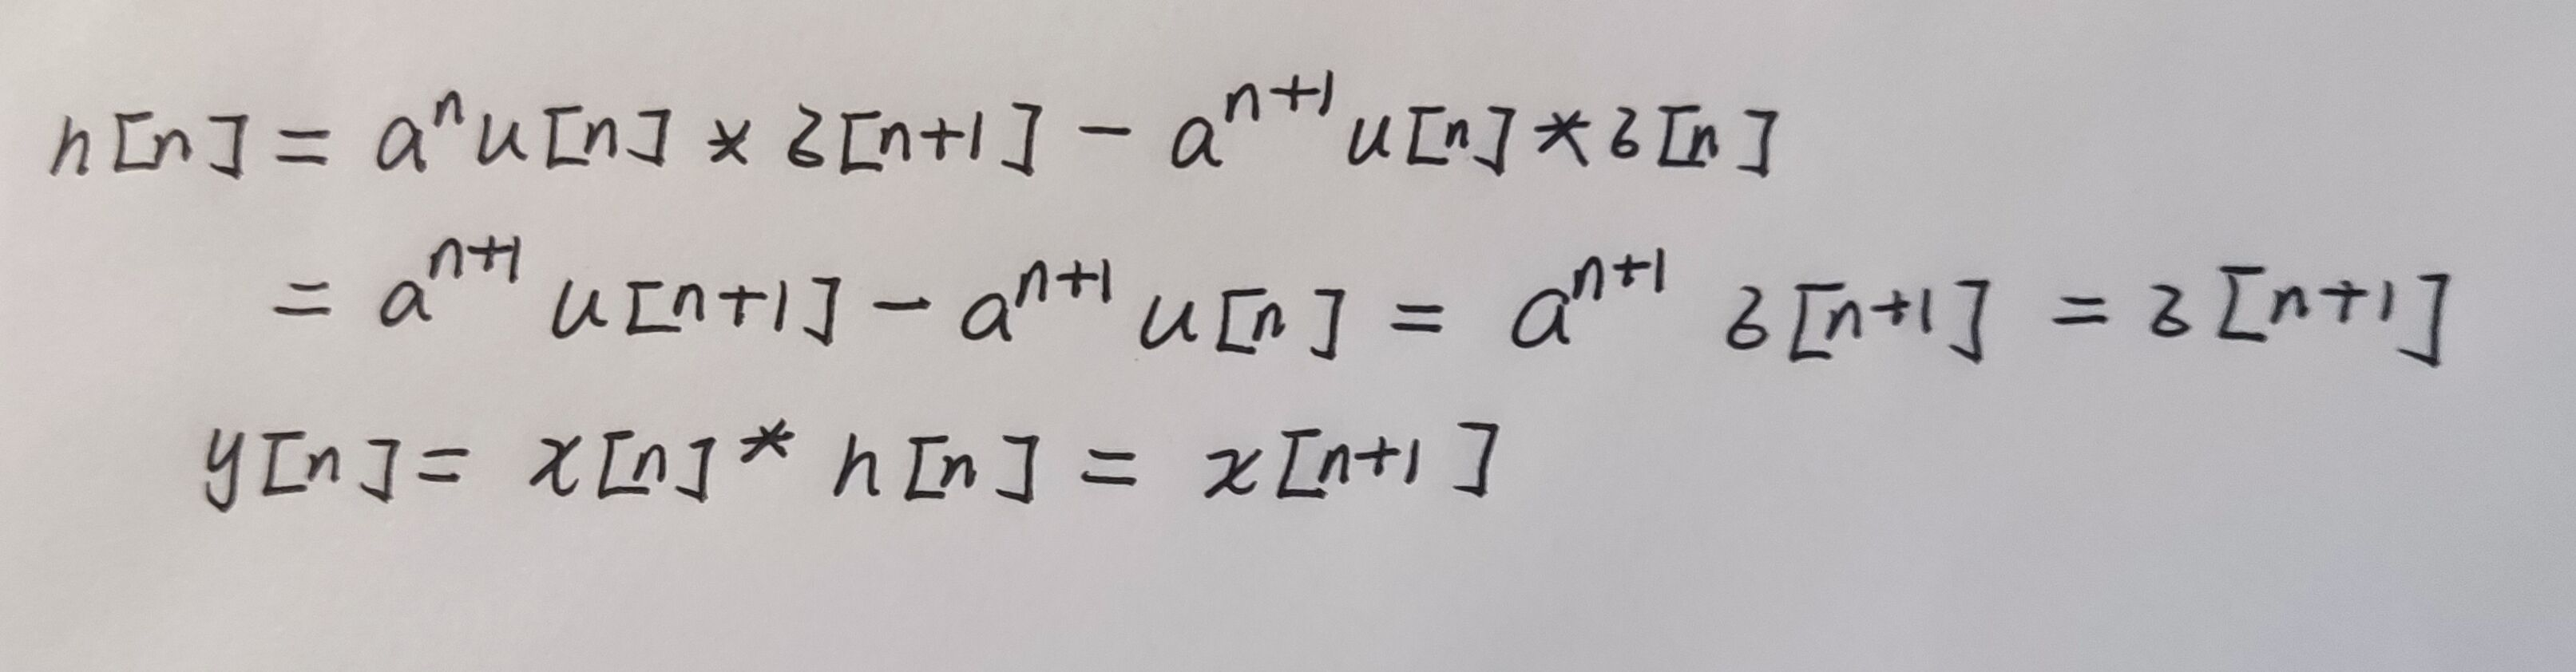 h[n] = aⁿu[n] * δ[n+1] − aⁿ⁺¹u[n] * δ[n]
= aⁿ⁺¹ u[n+1] − aⁿ⁺¹ u[n] = aⁿ⁺¹ δ[n+1] = δ[n+1]
y[n] = x[n] * h[n] = x[n+1]